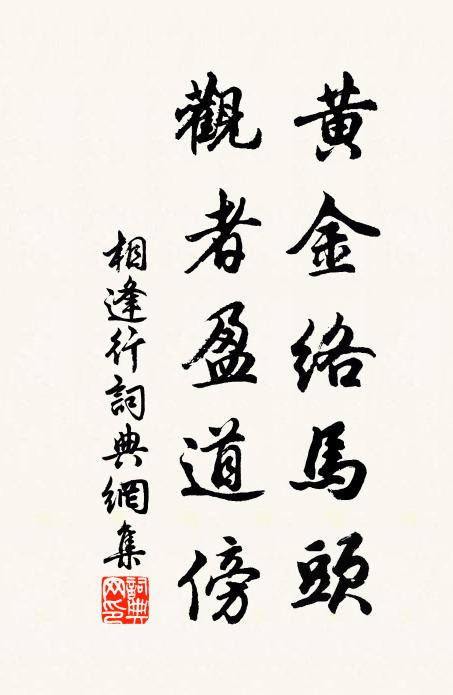 黄金絡馬頭
觀者盈道傍
相逢行詞典網集
詞典网印